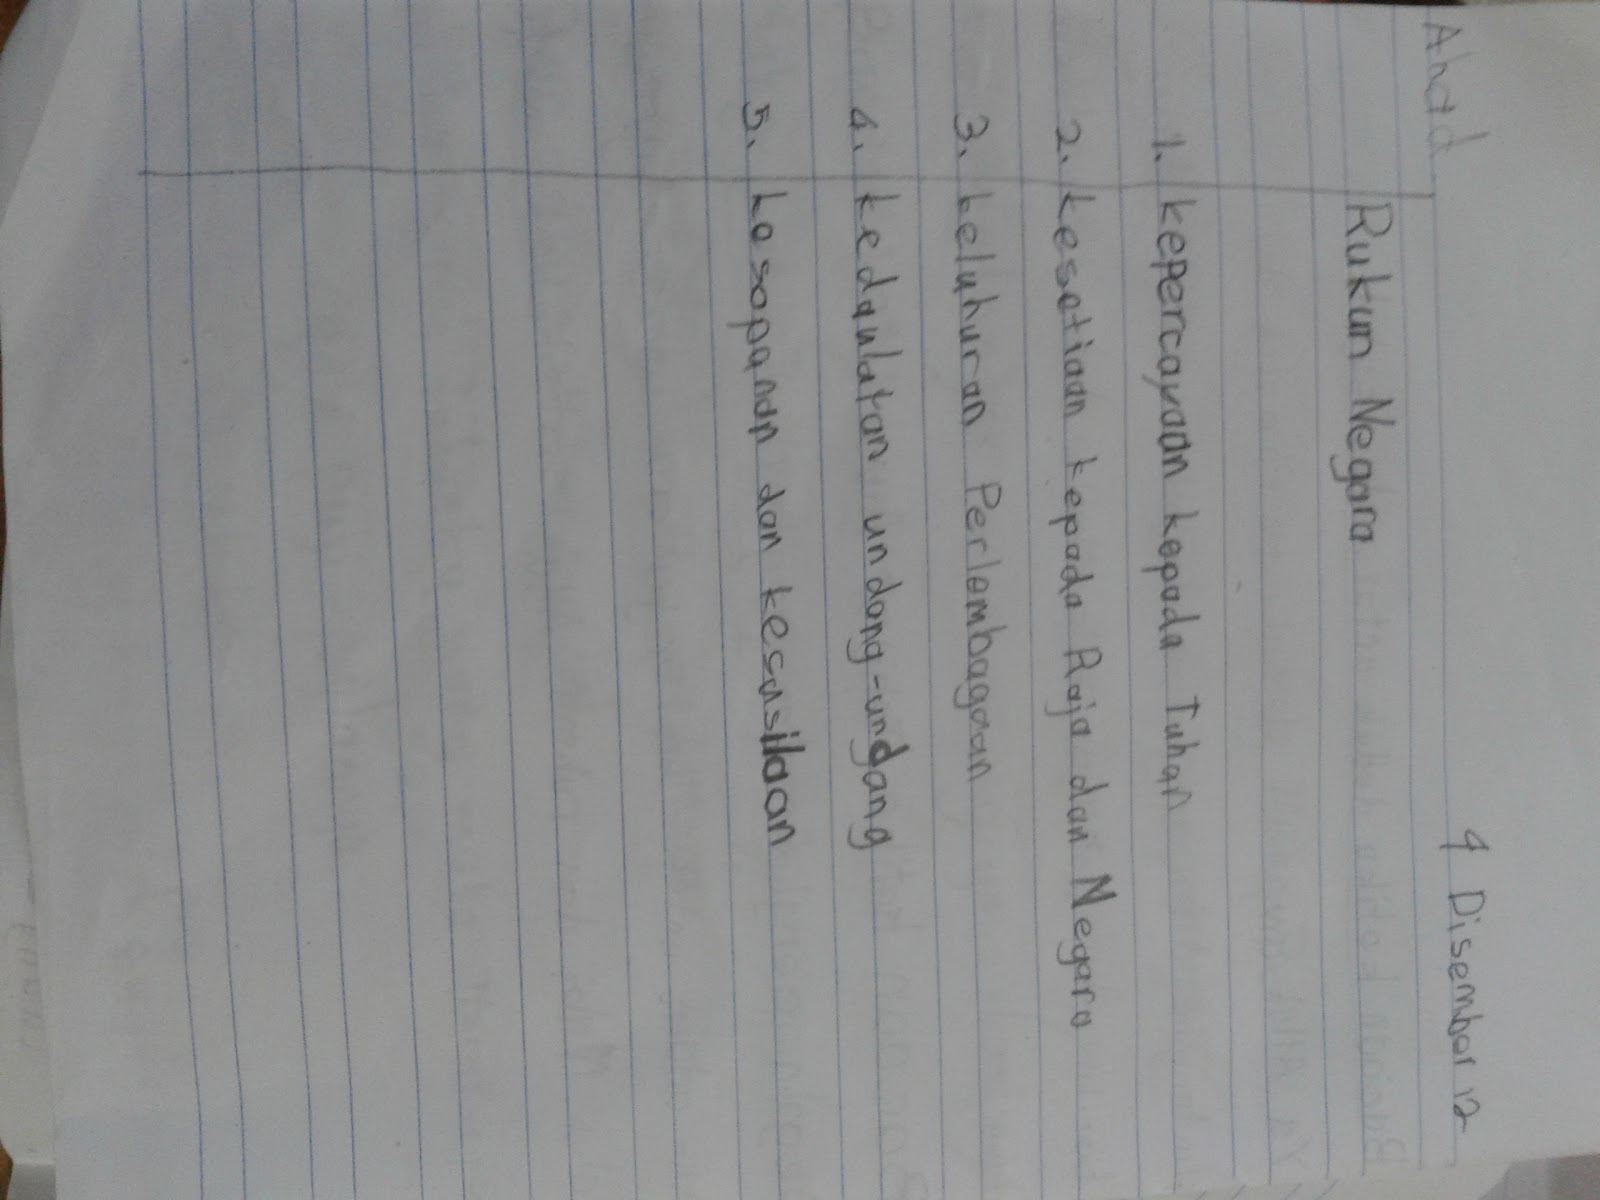 Ahad
9 Disember 12
Rukun Negara
1. kepercayaan kepada Tuhan
2. kesetiaan kepada Raja dan Negara
3. keluhuran Perlembagaan
4. kedaulatan undang-undang
5. kesopanan dan kesusilaan